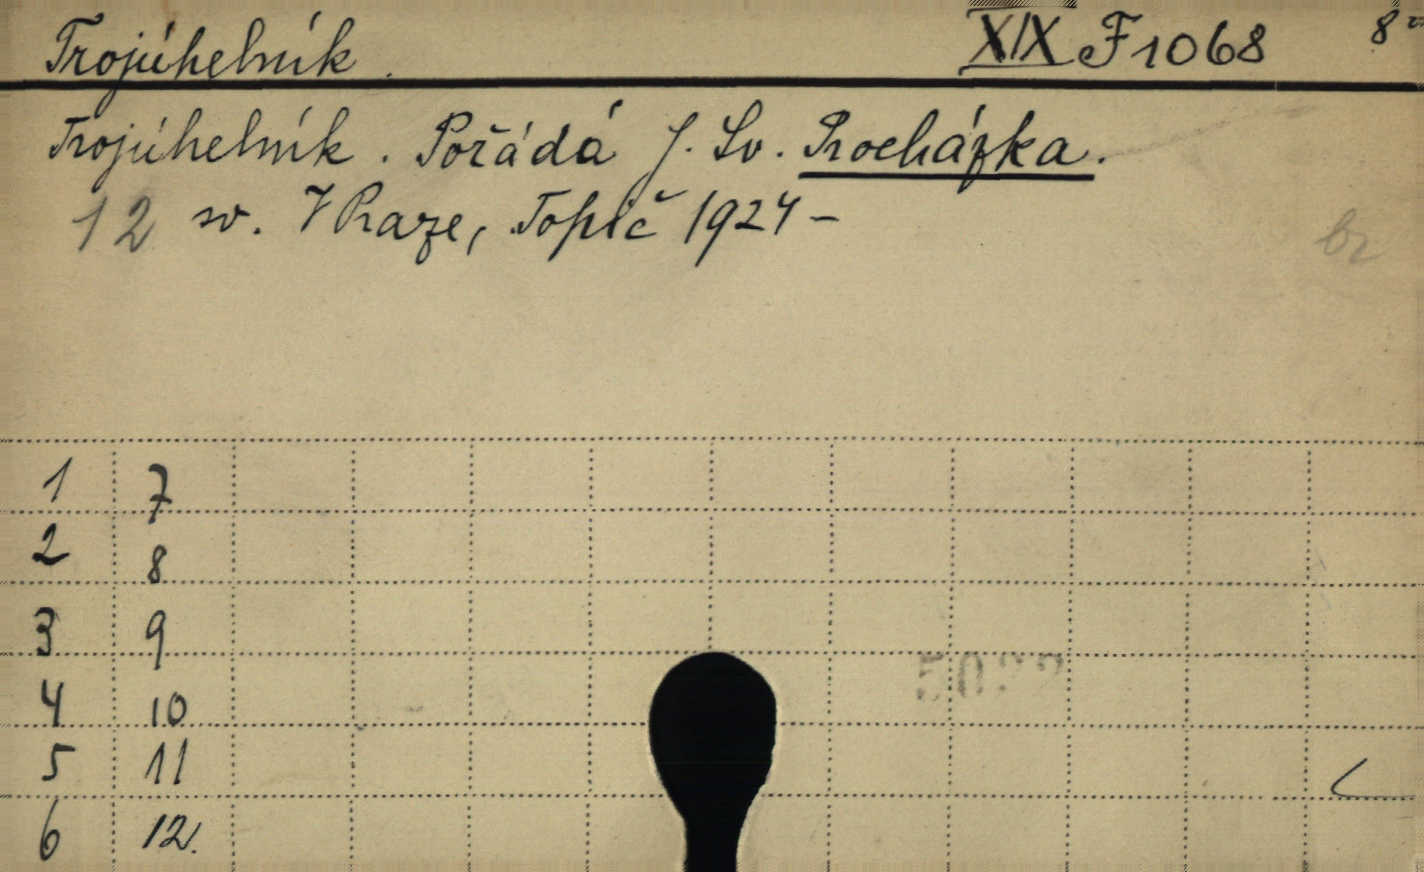 Trojúhelník. XIX F 1068 8°
Trojúhelník. Pořádá J. Sv. Procházka.
12 sv. V Praze, Topič 1924 –
br
1 7
2 8
3 9
4 10
5 11
6 12.